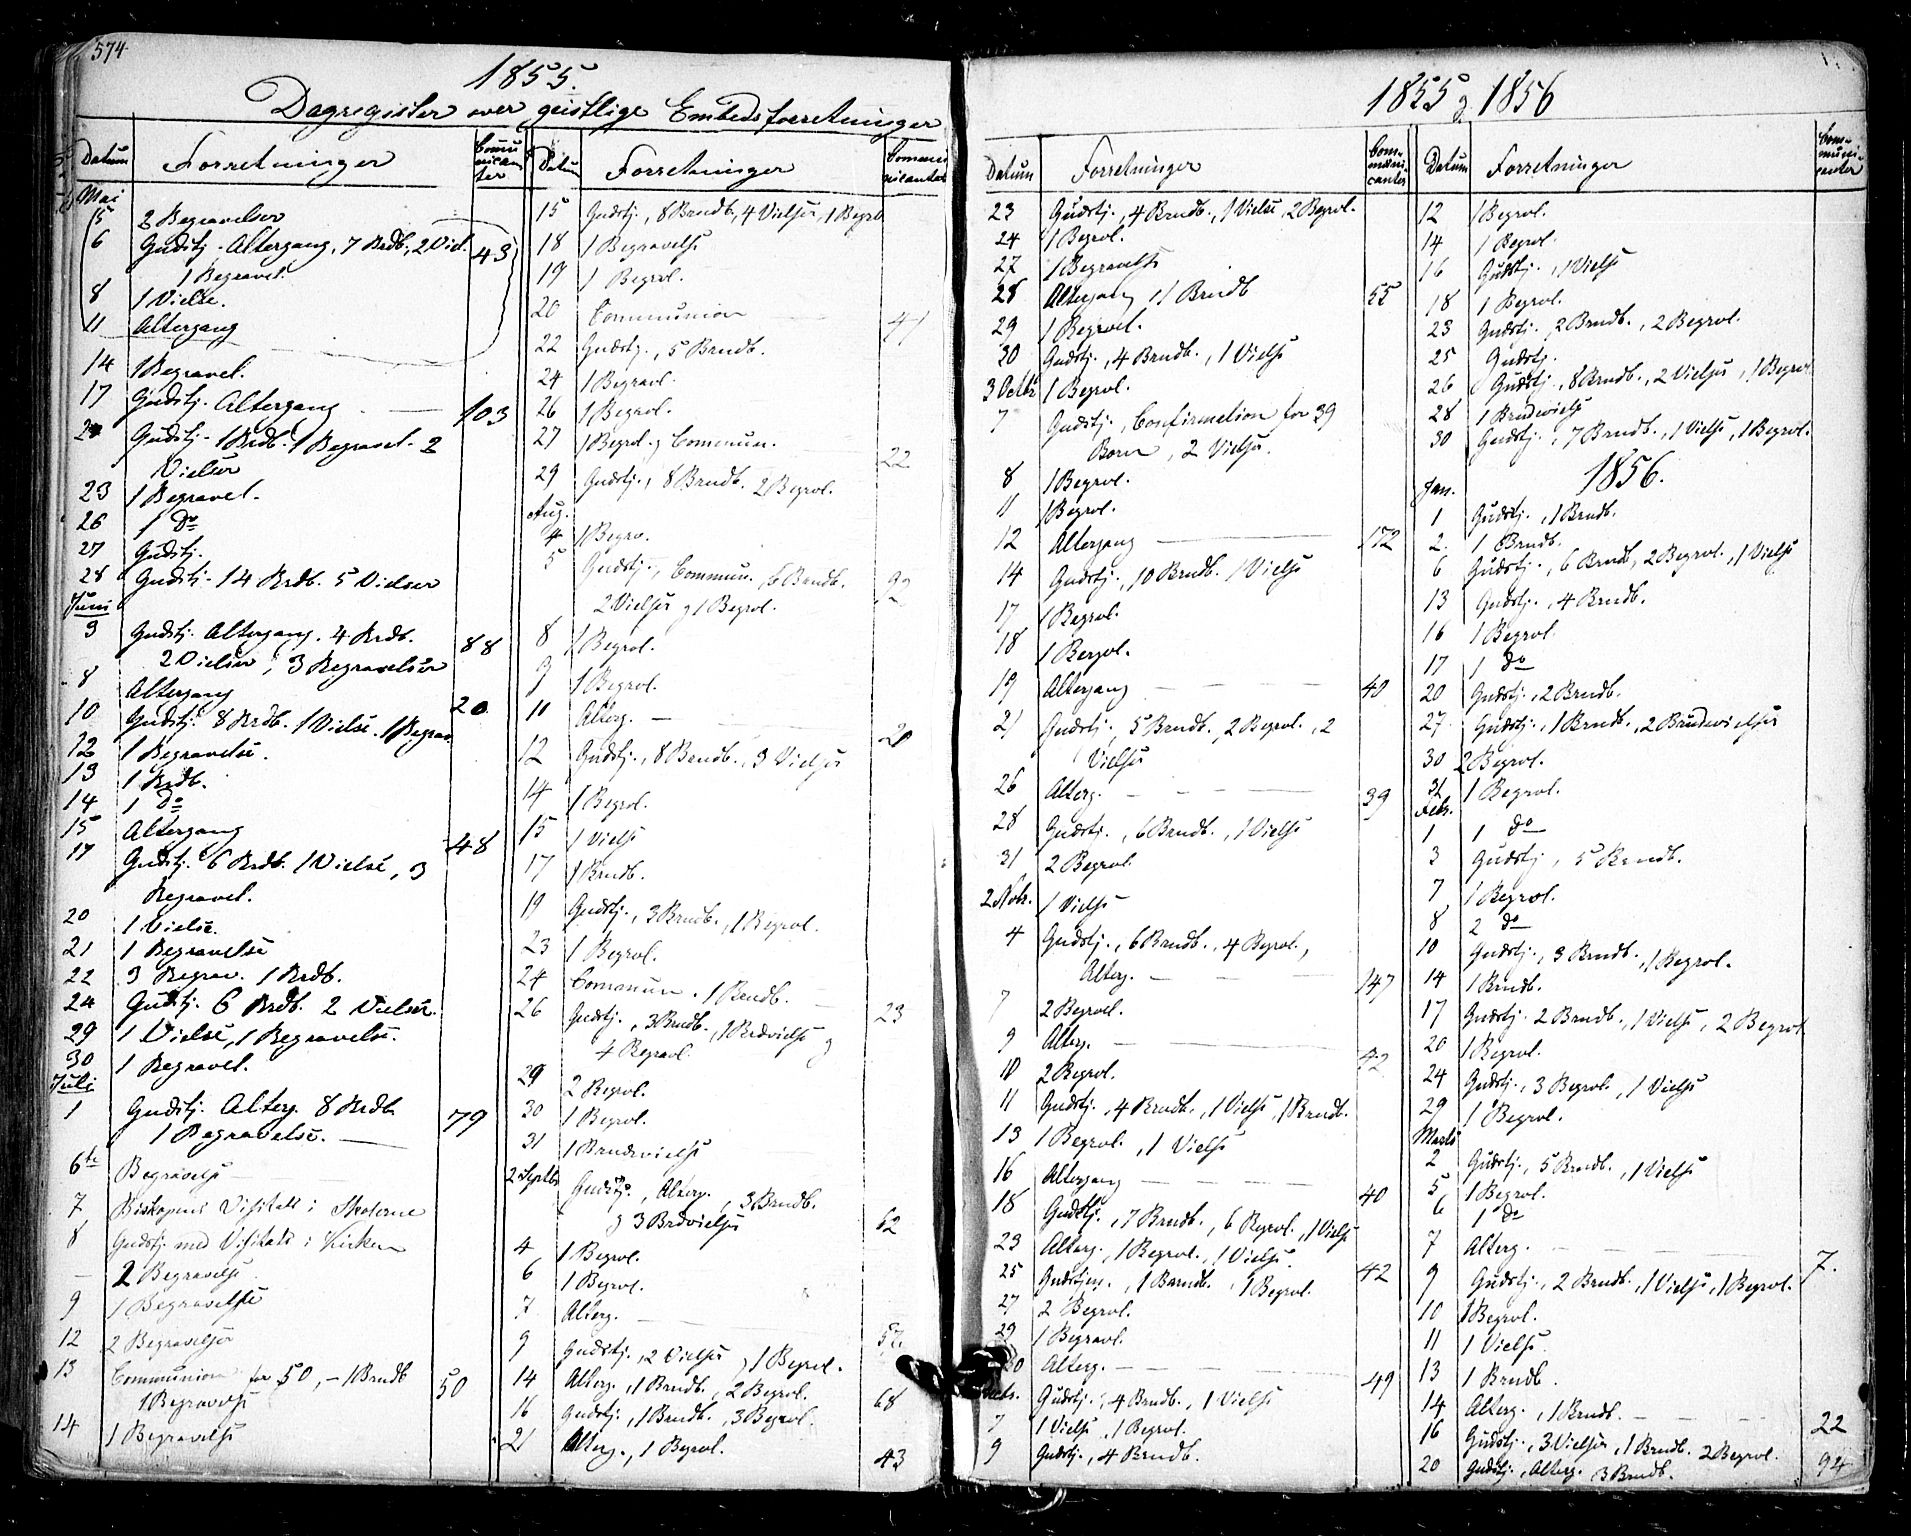 574
1855.
Dagregister over geistlige Embedsforretninger
Datum Forretninger Communicanter
Mai
5 2 Begravelser
6 Gudstj. Altergang, 7 Brdb., 2 Viel. 43
1 Begravel.
8 1 Vielse.
11 Altergang
14 1 Begravel.
17 Gudstj. Altergang 103
Gudstj. 1 Brdb. 1 Begravel. 2
Vielser
23 1 Begravel.
26 1 do
27 Gudstj.
28 Gudstj. 14 Brdb. 5 Vielser
Juni
3 Gudstj. Altergang. 4 Brdb. 88
2 Vielser, 3 Begravelser
8 Altergang 20
10 Gudstj. 8 Brdb. 1 Vielse. 1 Begrav.
12 1 Begravelse.
13 1 Brdb.
14 1 do
15 Altergang 48
17 Gudstj. 6 Brdb. 1 Vielse, 3
Begravel.
20 1 Vielse.
21 1 Begravelse
22 3 Begrav. 1 Brdb.
24 Gudstj. 6 Brdb. 2 Vielser.
29 1 Vielse, 1 Begravelse.
30 1 Begravel.
Juli
1 Gudstj. Alterg. 8 Brdb. 79
1 Begravelse.
6te Begravelse
7 Biskopens Visitats i Skolerne
8 Gudstj. med Visitats i Kirken
– 2 Begravelse
9 1 Begravelse
12 2 Begravelser
13 Communion for 50, – 1 Brndb 50
1 Begravelse
14 1 Begravelse
Datum Forretninger Communicanter
15 Gudstj., 8 Brndb, 4 Vielser, 1 Begrvl
18 1 Begravelse
19 1 Begrvl.
20 Communion 41
22 Gudstj., 5 Brndb.
24 1 Begravl.
26 1 Begrvl.
27 1 Begrvl. og Commun. 22
29 Gudstj., 8 Brndb. 2 Begrvl.
Aug.
4 1 Begrv.
5 Gudstj., Commun. 6 Brndb. 92
2 Vielser og 1 Begrvl.
8 1 Begrvl.
9 1 Begrvl.
11 Alterg. 20
12 Gudstj., 8 Brndb., 3 Vielser
14 1 Begrvl.
15 1 Vielse
17 1 Brndb.
19 Gudstj., 3 Brndb., 1 Begrvl.
23 1 Begrvl.
24 Commun. 1 Brndb. 23
26 Gudstj., 3 Brndb., 1 Brdvielse og
4 Begravl.
29 2 Begrvl.
30 1 Begrvl.
31 1 Brudevielse
2 Septbr Gudstj., Alterg., 3 Brndb. 62
og 3 Brdvielse
4 1 Begrvl.
6 1 Begrvl.
7 Alterg. 52
9 Gudstj., 2 Vielser, 1 Begrvl.
14 Alterg., 1 Brndb., 2 Begrvl. 68
16 Gudstj., 1 Brndb., 3 Begrvl.
21 Alterg., 1 Begrvl. 43
1855 og 1856
Datum Forretninger Communicanter
23 Gudstj., 4 Brndb., 1 Vielse, 2 Begrvl.
24 1 Begrvl.
27 1 Begravelse
28 Altergang, 1 Brndb 55
29 1 Begravl.
30 Gudstj., 4 Brndb., 1 Vielse
3 Octbr 1 Begrvl.
7 Gudstj., Confirmation for 39
Børn, 2 Vielser.
8 1 Begrvl.
11 1 Begrvl.
12 Altergang 172
14 Gudstj., 10 Brndb. 1 Vielse
17 1 Begrvl.
18 1 Begrvl.
19 Altergang 40
21 Gudstj., 5 Brndb., 2 Begrvl., 2
Vielser
26 Alterg. 39
28 Gudstj., 6 Brndb., 1 Vielse
31 2 Begrvl.
2 Nvbr. 1 Vielse
4 Gudstj., 6 Brndb., 4 Begrvl.,
Alterg. 147
7 2 Begravl.
9 Alterg. 42
10 2 Begrvl.
11 Gudstj., 4 Brndb., 1 Vielse, 1 Brndb.
13 1 Begrvl., 1 Vielse
16 Altergang 40
18 Gudstj., 7 Brndb., 6 Begrvl., 1 Vielse
23 Alterg., 1 Begrvl., 1 Vielse. 42
25 Gudstjen., 1 Barndb., 1 Begrvl.
27 2 Begrvl.
29 1 Begravl.
30 Alterg. 49
Gudstj., 4 Brndb., 1 Vielse
7 1 Vielse, 1 Begrvl.
9 Gudstj., 4 Brndb.
Datum Forretninger Communicanter
12 1 Begrvl.
14 1 Begrvl.
16 Gudstj., 1 Vielse
18 1 Begrvl.
23 Gudstj., 2 Brndb., 2 Begrvl.
25 Gudstj.
26 Gudstj., 8 Brndb., 2 Vielser, 1 Begrvl
28 1 Brudevielse
30 Gudstj., 7 Brndb., 1 Vielse, 1 Begrvl.
1856.
Jan.
1 Gudstj., 1 Brndb.
2. 1 Brndb.
6 Gudstj., 6 Brndb, 2 Begrvl., 1 Vielse
13 Gudstj., 4 Brndb.
16 1 Begrvl.
17 1 do
20 Gudstj., 2 Brndb.
27. Gudstj., 1 Brndb., 2 Brudevielser
30 2 Begrvl.
31 1 Begrvl.
Febr.
1 1 do
3 Gudstj., 5 Brndb.
7 1 Begrvl.
8 2 do
10 Gudstj., 3 Brndb., 1 Begrvl.
14 1 Brndb.
17 Gudstj. 2 Brndb., 1 Vielse, 2 Begrvl
20 1 Begrvl.
24 Gudstj., 3 Begrvl., 1 Vielse
29 1 Begrvl.
Marts
2 Gudstj., 5 Brndb., 1 Vielse
5 1 Begrvl.
6 1 do
7 Alterg. 7.
9 Gudstj., 2 Brndb., 1 Vielse, 1 Begrvl.
10 1 Begrvl.
11 1 Vielse.
13 1 Brndb.
14 Alterg., 1 Brndb. 22
16 Gudstj., 3 Vielser, 1 Brndb. 2 Begrvl.
20 Gudstj., Alterg. 3 Brndb. 94